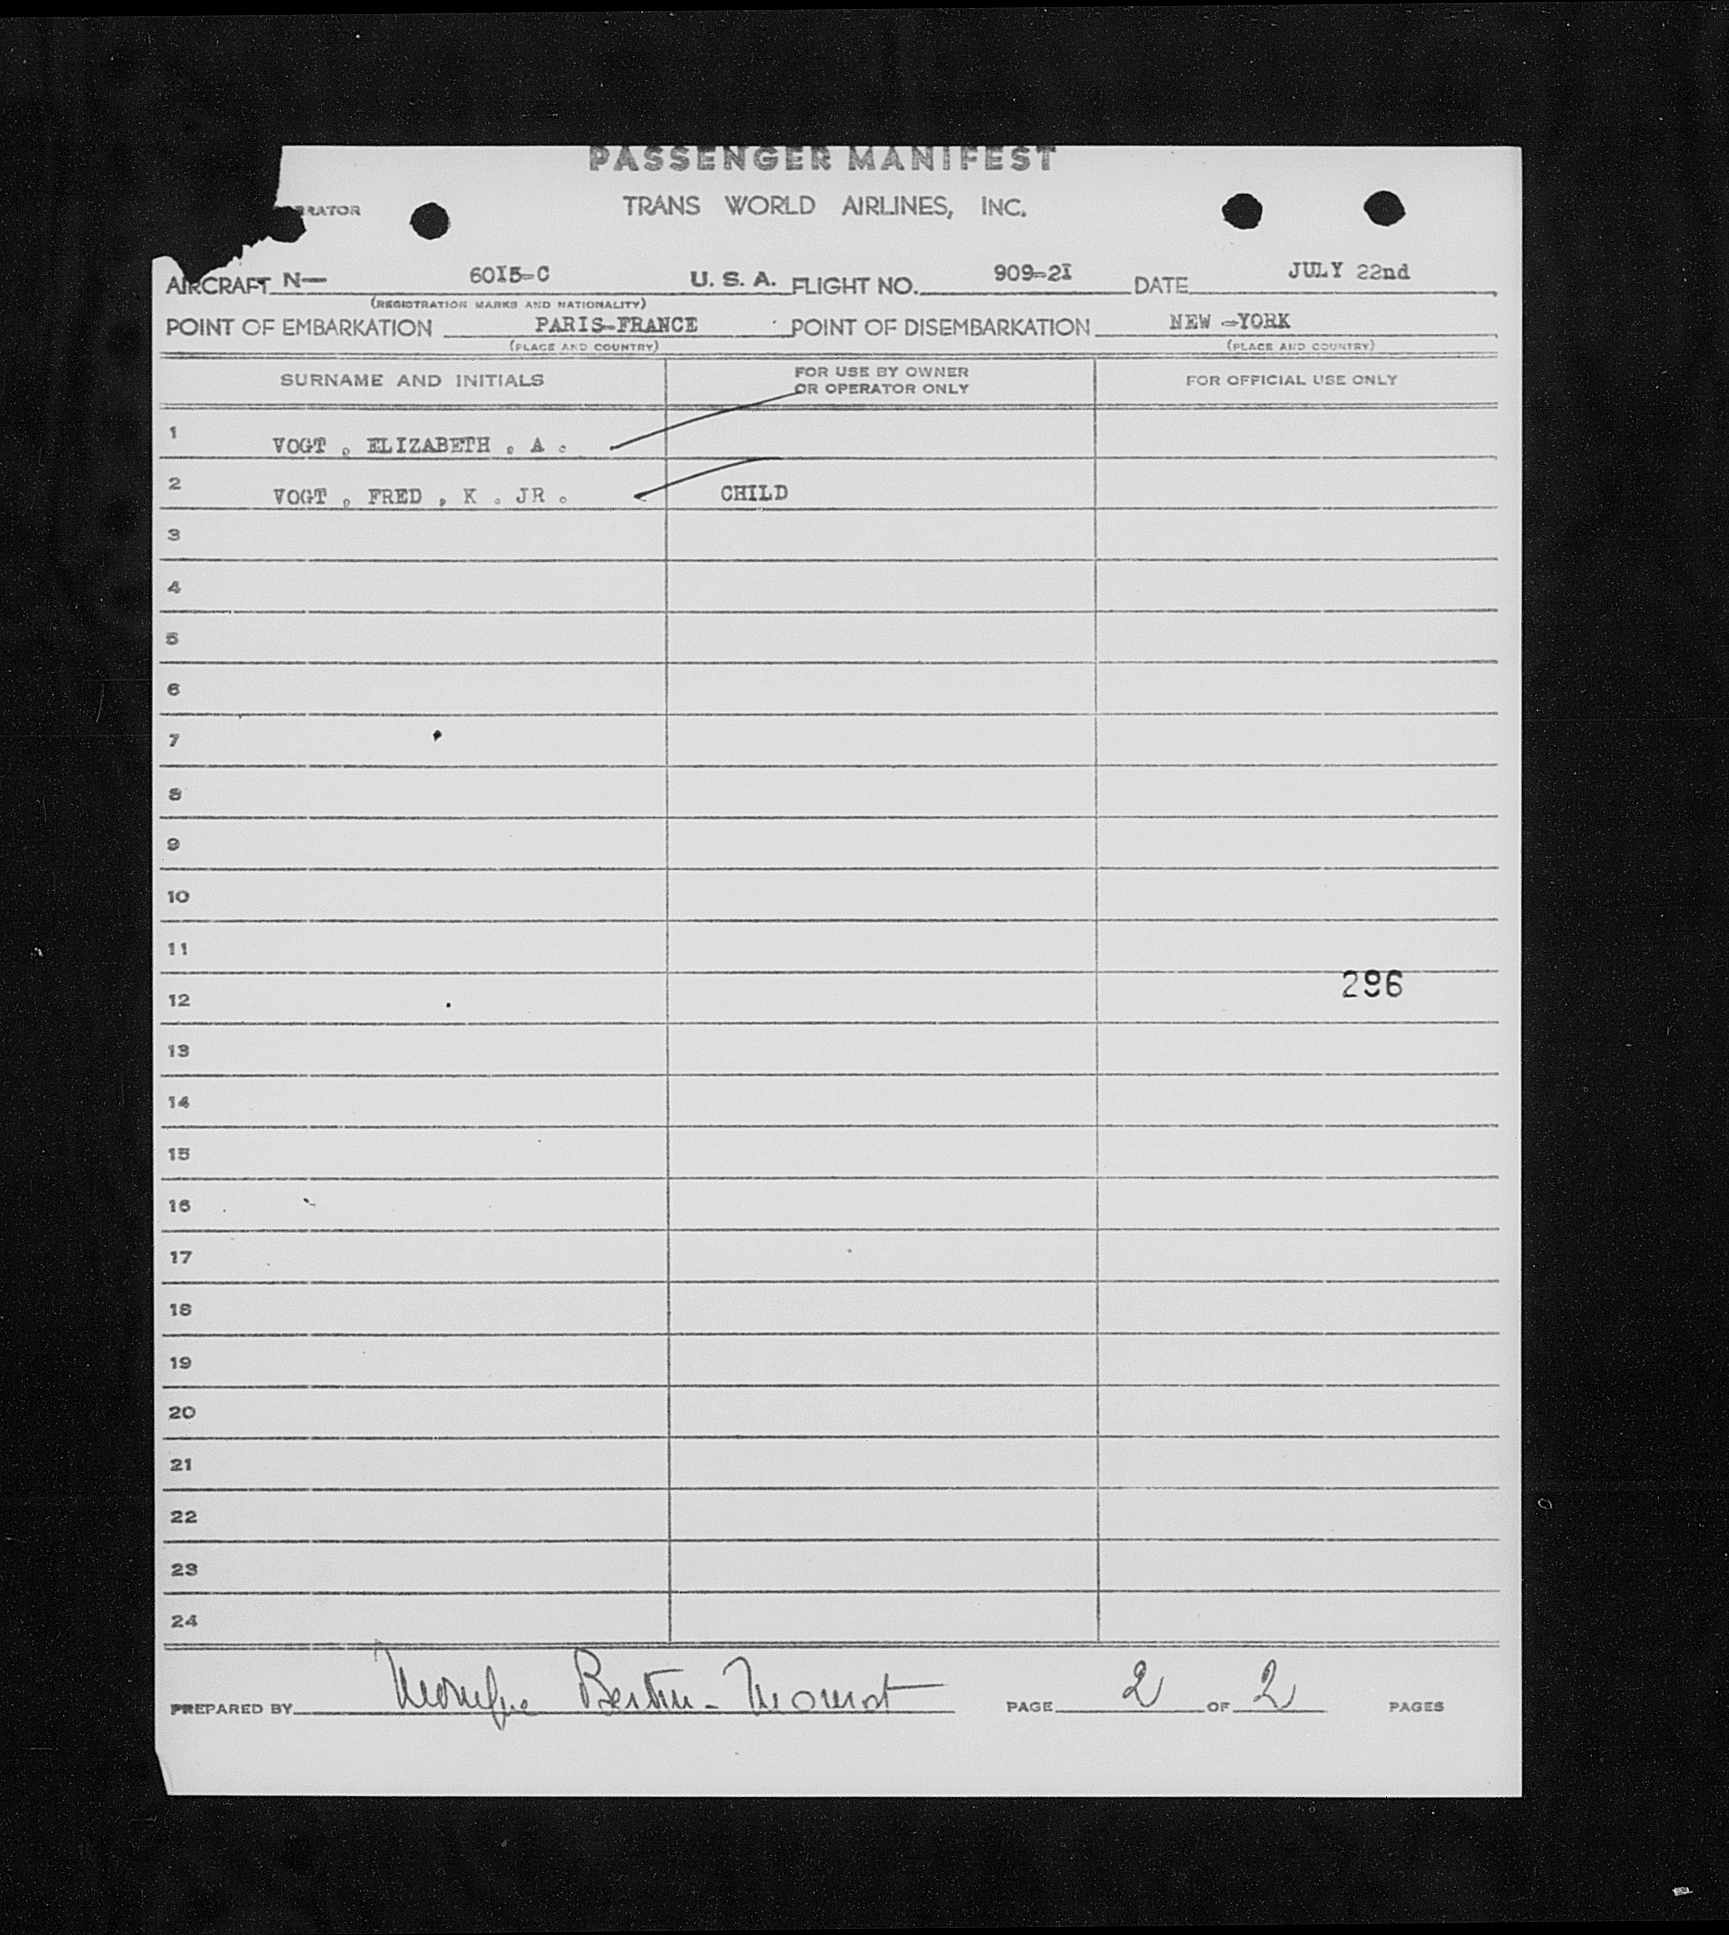 PASSENGER MANIFEST
TRANS WORLD AIRLINES, INC.
AIRCRAFT N— 60I5-C U. S. A. FLIGHT NO. 909-2I DATE JULY 22nd
(REGISTRATION MARKS AND NATIONALITY)
POINT OF EMBARKATION PARIS-FRANCE POINT OF DISEMBARKATION NEW -YORK
(PLACE AND COUNTRY) (PLACE AND COUNTRY)
SURNAME AND INITIALS FOR USE BY OWNER OR OPERATOR ONLY FOR OFFICIAL USE ONLY
1 VOGT , ELIZABETH , A .
2 VOGT , FRED , K . JR . CHILD
3
4
5
6
7
8
9
10
11
296
12
13
14
15
16
17
18
19
20
21
22
23
24
PREPARED BY PAGE 2 OF 2 PAGES